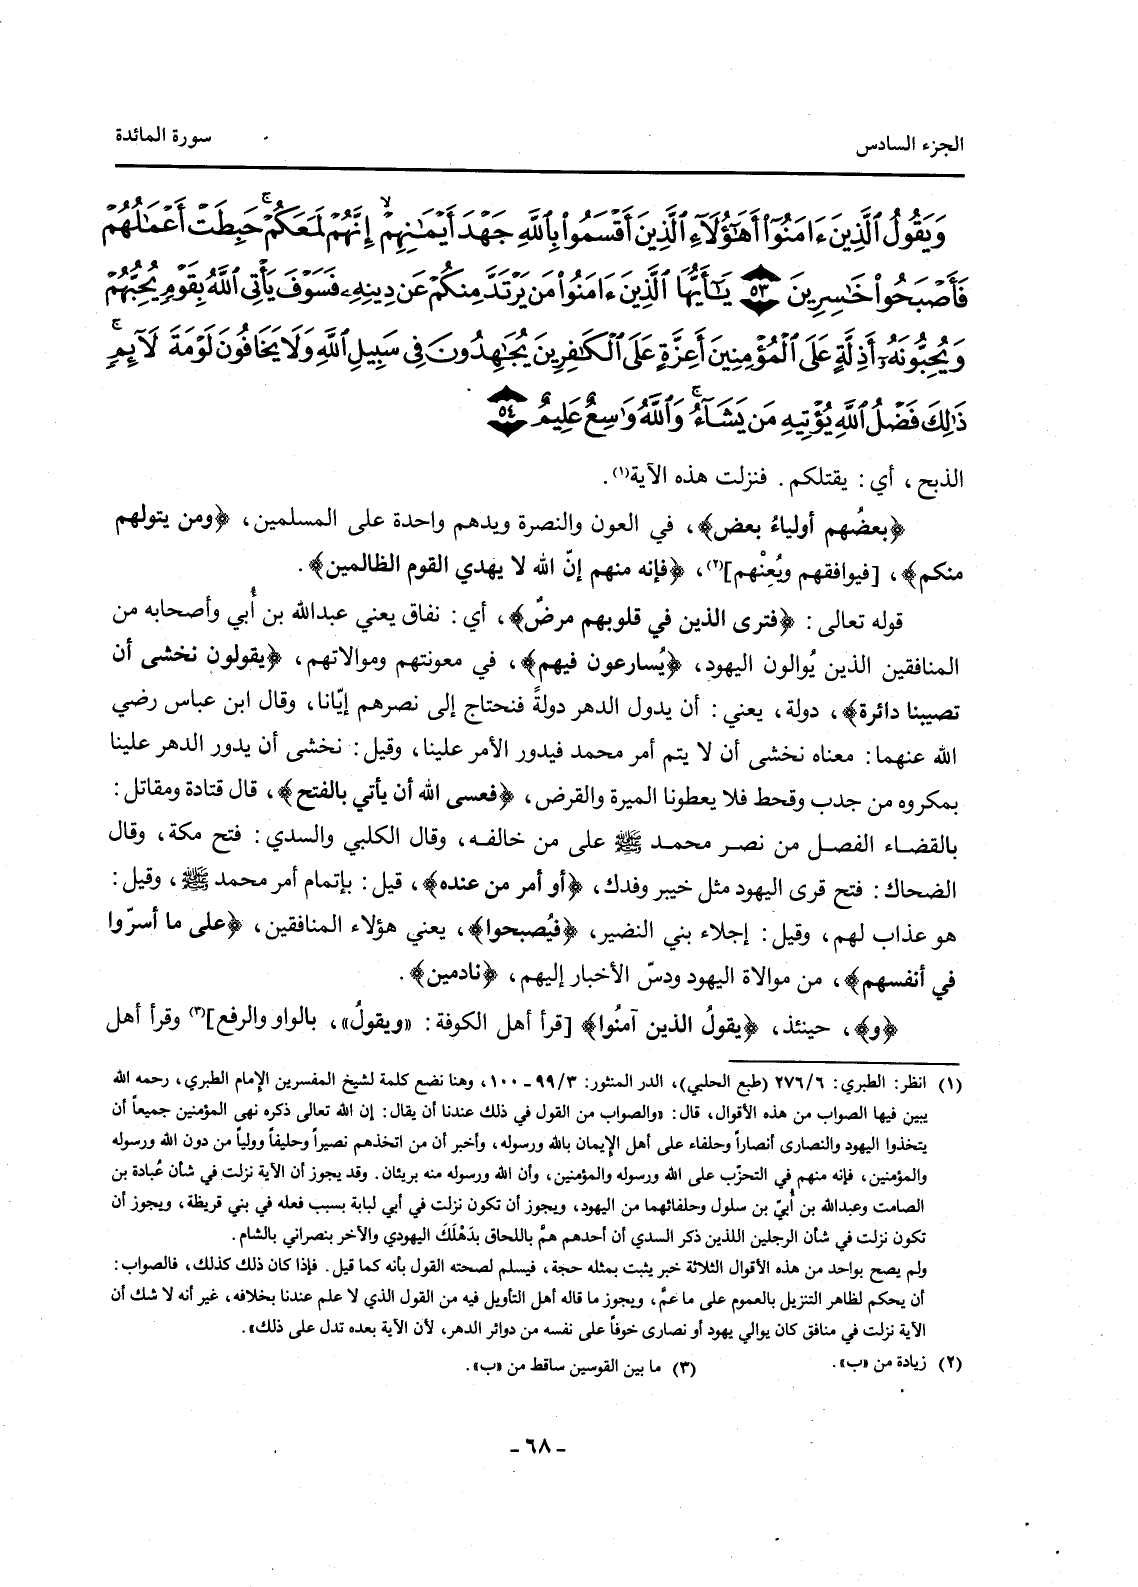 الجزء السادس
سورة المائدة
وَيَقُولُ ٱلَّذِينَ ءَامَنُوٓا۟ أَهَٰٓؤُلَآءِ ٱلَّذِينَ أَقْسَمُوا۟ بِٱللَّهِ جَهْدَ أَيْمَٰنِهِمْ ۙ إِنَّهُمْ لَمَعَكُمْ ۚ حَبِطَتْ أَعْمَٰلُهُمْ
فَأَصْبَحُوا۟ خَٰسِرِينَ ٥٣ يَٰٓأَيُّهَا ٱلَّذِينَ ءَامَنُوا۟ مَن يَرْتَدَّ مِنكُمْ عَن دِينِهِۦ فَسَوْفَ يَأْتِى ٱللَّهُ بِقَوْمٍ يُحِبُّهُمْ
وَيُحِبُّونَهُۥٓ أَذِلَّةٍ عَلَى ٱلْمُؤْمِنِينَ أَعِزَّةٍ عَلَى ٱلْكَٰفِرِينَ يُجَٰهِدُونَ فِى سَبِيلِ ٱللَّهِ وَلَا يَخَافُونَ لَوْمَةَ لَآئِمٍ ۚ
ذَٰلِكَ فَضْلُ ٱللَّهِ يُؤْتِيهِ مَن يَشَآءُ ۚ وَٱللَّهُ وَٰسِعٌ عَلِيمٌ ٥٤
الذبح، أي: يقتلكم. فنزلت هذه الآية(١).
﴿بعضُهم أولياءُ بعض﴾، في العون والنصرة ويدهم واحدة على المسلمين، ﴿ومن يتولهم
منكم﴾، [فيوافقهم ويُعِنْهم](٢)، ﴿فإنه منهم إنّ الله لا يهدي القوم الظالمين﴾.
قوله تعالى: ﴿فترى الذين في قلوبهم مرضٌ﴾، أي: نفاق يعني عبدالله بن أُبي وأصحابه من
المنافقين الذين يُوالون اليهود، ﴿يُسارعون فيهم﴾، في معونتهم وموالاتهم، ﴿يقولون نخشى أن
تصيبنا دائرة﴾، دولة، يعني: أن يدول الدهر دولةً فنحتاج إلى نصرهم إيّانا، وقال ابن عباس رضي
الله عنهما: معناه نخشى أن لا يتم أمر محمد فيدور الأمر علينا، وقيل: نخشى أن يدور الدهر علينا
بمكروه من جدب وقحط فلا يعطونا الميرة والقرض، ﴿فعسى الله أن يأتي بالفتح﴾، قال قتادة ومقاتل:
بالقضاء الفصل من نصر محمد ﷺ على من خالفه، وقال الكلبي والسدي: فتح مكة، وقال
الضحاك: فتح قرى اليهود مثل خيبر وفدك، ﴿أو أمر من عنده﴾، قيل: بإتمام أمر محمد ﷺ، وقيل:
هو عذاب لهم، وقيل: إجلاء بني النضير، ﴿فيُصبحوا﴾، يعني هؤلاء المنافقين، ﴿على ما أسرّوا
في أنفسهم﴾، من موالاة اليهود ودسّ الأخبار إليهم، ﴿نادمين﴾.
﴿و﴾، حينئذ، ﴿يقولُ الذين آمنُوا﴾ [قرأ أهل الكوفة: «ويقولُ»، بالواو والرفع](٣) وقرأ أهل
(١) انظر: الطبري: ٢٧٦/٦ (طبع الحلبي)، الدر المنثور: ٩٩/٣ـ١٠٠، وهنا نضع كلمة لشيخ المفسرين الإمام الطبري، رحمه الله
يبين فيها الصواب من هذه الأقوال، قال: «والصواب من القول في ذلك عندنا أن يقال: إن الله تعالى ذكره نهى المؤمنين جميعاً أن
يتخذوا اليهود والنصارى أنصاراً وحلفاء على أهل الإيمان بالله ورسوله، وأخبر أن من اتخذهم نصيراً وحليفاً وولياً من دون الله ورسوله
والمؤمنين، فإنه منهم في التحزّب على الله ورسوله والمؤمنين، وأن الله ورسوله منه بريئان. وقد يجوز أن الآية نزلت في شأن عُبادة بن
الصامت وعبدالله بن أُبيّ بن سلول وحلفائهما من اليهود، ويجوز أن تكون نزلت في أبي لبابة بسبب فعله في بني قريظة، ويجوز أن
تكون نزلت في شأن الرجلين اللذين ذكر السدي أن أحدهم همَّ باللحاق بدَهْلَكَ اليهودي والآخر بنصراني بالشام.
ولم يصح بواحد من هذه الأقوال الثلاثة خبر يثبت بمثله حجة، فيسلم لصحته القول بأنه كما قيل. فإذا كان ذلك كذلك، فالصواب:
أن يحكم لظاهر التنزيل بالعموم على ما عمَّ، ويجوز ما قاله أهل التأويل فيه من القول الذي لا علم عندنا بخلافه، غير أنه لا شك أن
الآية نزلت في منافق كان يوالي يهود أو نصارى خوفاً على نفسه من دوائر الدهر، لأن الآية بعده تدل على ذلك».
(٢) زيادة من «ب».
(٣) ما بين القوسين ساقط من «ب».
ـ ٦٨ ـ